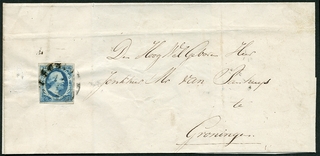 Den Hoog Wel Geboren Heer
Jonkheer Mr van
te
Groningen